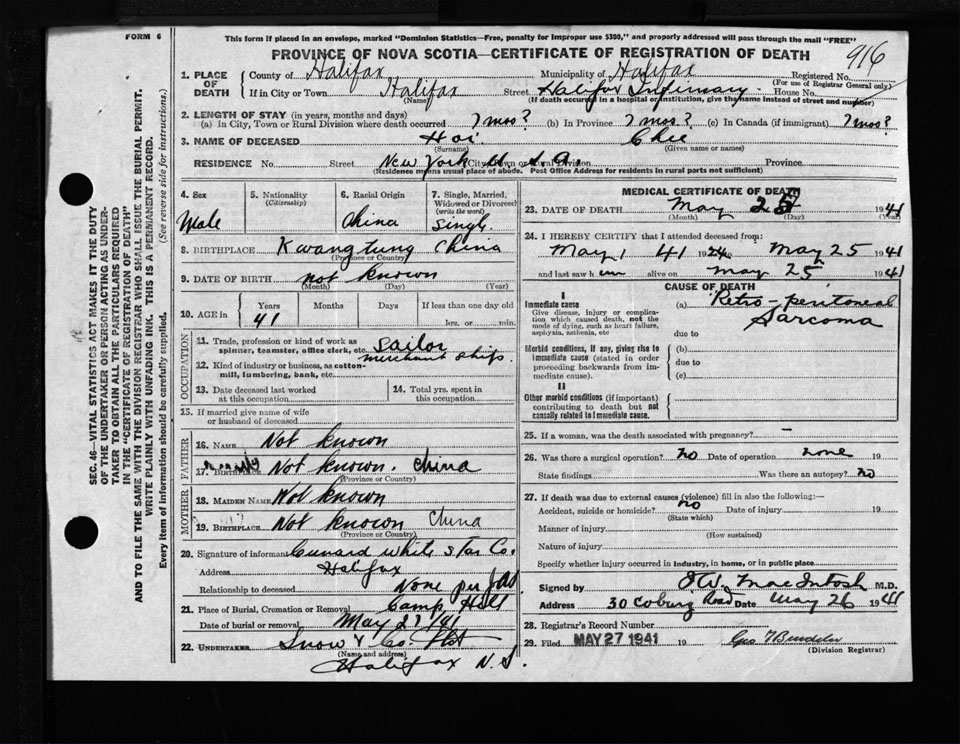 FORM 6
This form if placed in an envelope, marked "Dominion Statistics—Free, penalty for improper use $300," and properly addressed will pass through the mail "FREE"
PROVINCE OF NOVA SCOTIA—CERTIFICATE OF REGISTRATION OF DEATH
916
1. PLACE OF DEATH
County of Halifax Municipality of Halifax Registered No.
(For use of Registrar General only)
If in City or Town Halifax Street Halifax Infirmary House No.
(Name) (If death occurred in a hospital or institution, give the name instead of street and number)
2. LENGTH OF STAY (in years, months and days)
(a) In City, Town or Rural Division where death occurred ? mos? (b) In Province ? mos? (c) In Canada (if immigrant) ? mos?
3. NAME OF DECEASED Hoi Chee
(Surname) (Given name or names)
RESIDENCE No. Street New York U.S.A. City, Town or Rural Division Province
(Residence means usual place of abode. Post Office Address for residents in rural parts not sufficient)
4. Sex Male
5. Nationality (Citizenship)
6. Racial Origin China
7. Single, Married, Widowed or Divorced (write the word) Single
8. BIRTHPLACE Kwangtung China
(Province or Country)
9. DATE OF BIRTH not known
(Month) (Day) (Year)
10. AGE in Years 41 Months Days If less than one day old hrs. or min.
OCCUPATION
11. Trade, profession or kind of work as spinner, teamster, office clerk, etc. sailor
merchant ships
12. Kind of industry or business, as cotton-mill, lumbering, bank, etc.
13. Date deceased last worked at this occupation
14. Total yrs. spent in this occupation
15. If married give name of wife or husband of deceased
FATHER
16. NAME Not known
17. BIRTHPLACE Not known. China
(Province or Country)
MOTHER
18. MAIDEN NAME Not known
19. BIRTHPLACE Not known China
(Province or Country)
20. Signature of informant Cunard White Star Co.
Address Halifax
Relationship to deceased None per
21. Place of Burial, Cremation or Removal Camp Hill
Date of burial or removal May 27/41
22. UNDERTAKER Snow & Co
(Name and address)
Halifax N.S.
MEDICAL CERTIFICATE OF DEATH
23. DATE OF DEATH May 25 1941
(Month) (Day)
24. I HEREBY CERTIFY that I attended deceased from:
May 1 41 19 May 25 1941
and last saw him alive on May 25 1941
CAUSE OF DEATH
I
Immediate cause
Give disease, injury or complication which caused death, not the mode of dying, such as heart failure, asphyxia, asthenia, etc
(a) Retro-peritoneal
Sarcoma
due to
Morbid conditions, if any, giving rise to immediate cause (stated in order proceeding backwards from immediate cause).
(b)
due to
(c)
II
Other morbid conditions (if important) contributing to death but not causally related to immediate cause.
25. If a woman, was the death associated with pregnancy? —
26. Was there a surgical operation? no Date of operation none 19
State findings Was there an autopsy? no
27. If death was due to external causes (violence) fill in also the following:—
Accident, suicide or homicide? no Date of injury 19
(State which)
Manner of injury
(How sustained)
Nature of injury
Specify whether injury occurred in industry, in home, or in public place
Signed by O.W. MacIntosh M.D.
Address 30 Coburg Road Date May 26 1941
28. Registrar's Record Number
29. Filed MAY 27 1941 19
(Division Registrar)
SEC. 46—VITAL STATISTICS ACT MAKES IT THE DUTY OF THE UNDERTAKER OR PERSON ACTING AS UNDERTAKER TO OBTAIN ALL THE PARTICULARS REQUIRED IN THE "CERTIFICATE OF REGISTRATION OF DEATH" AND TO FILE THE SAME WITH THE DIVISION REGISTRAR WHO SHALL ISSUE THE BURIAL PERMIT.
WRITE PLAINLY WITH UNFADING INK. THIS IS A PERMANENT RECORD.
Every item of information should be carefully supplied. (See reverse side for instructions.)